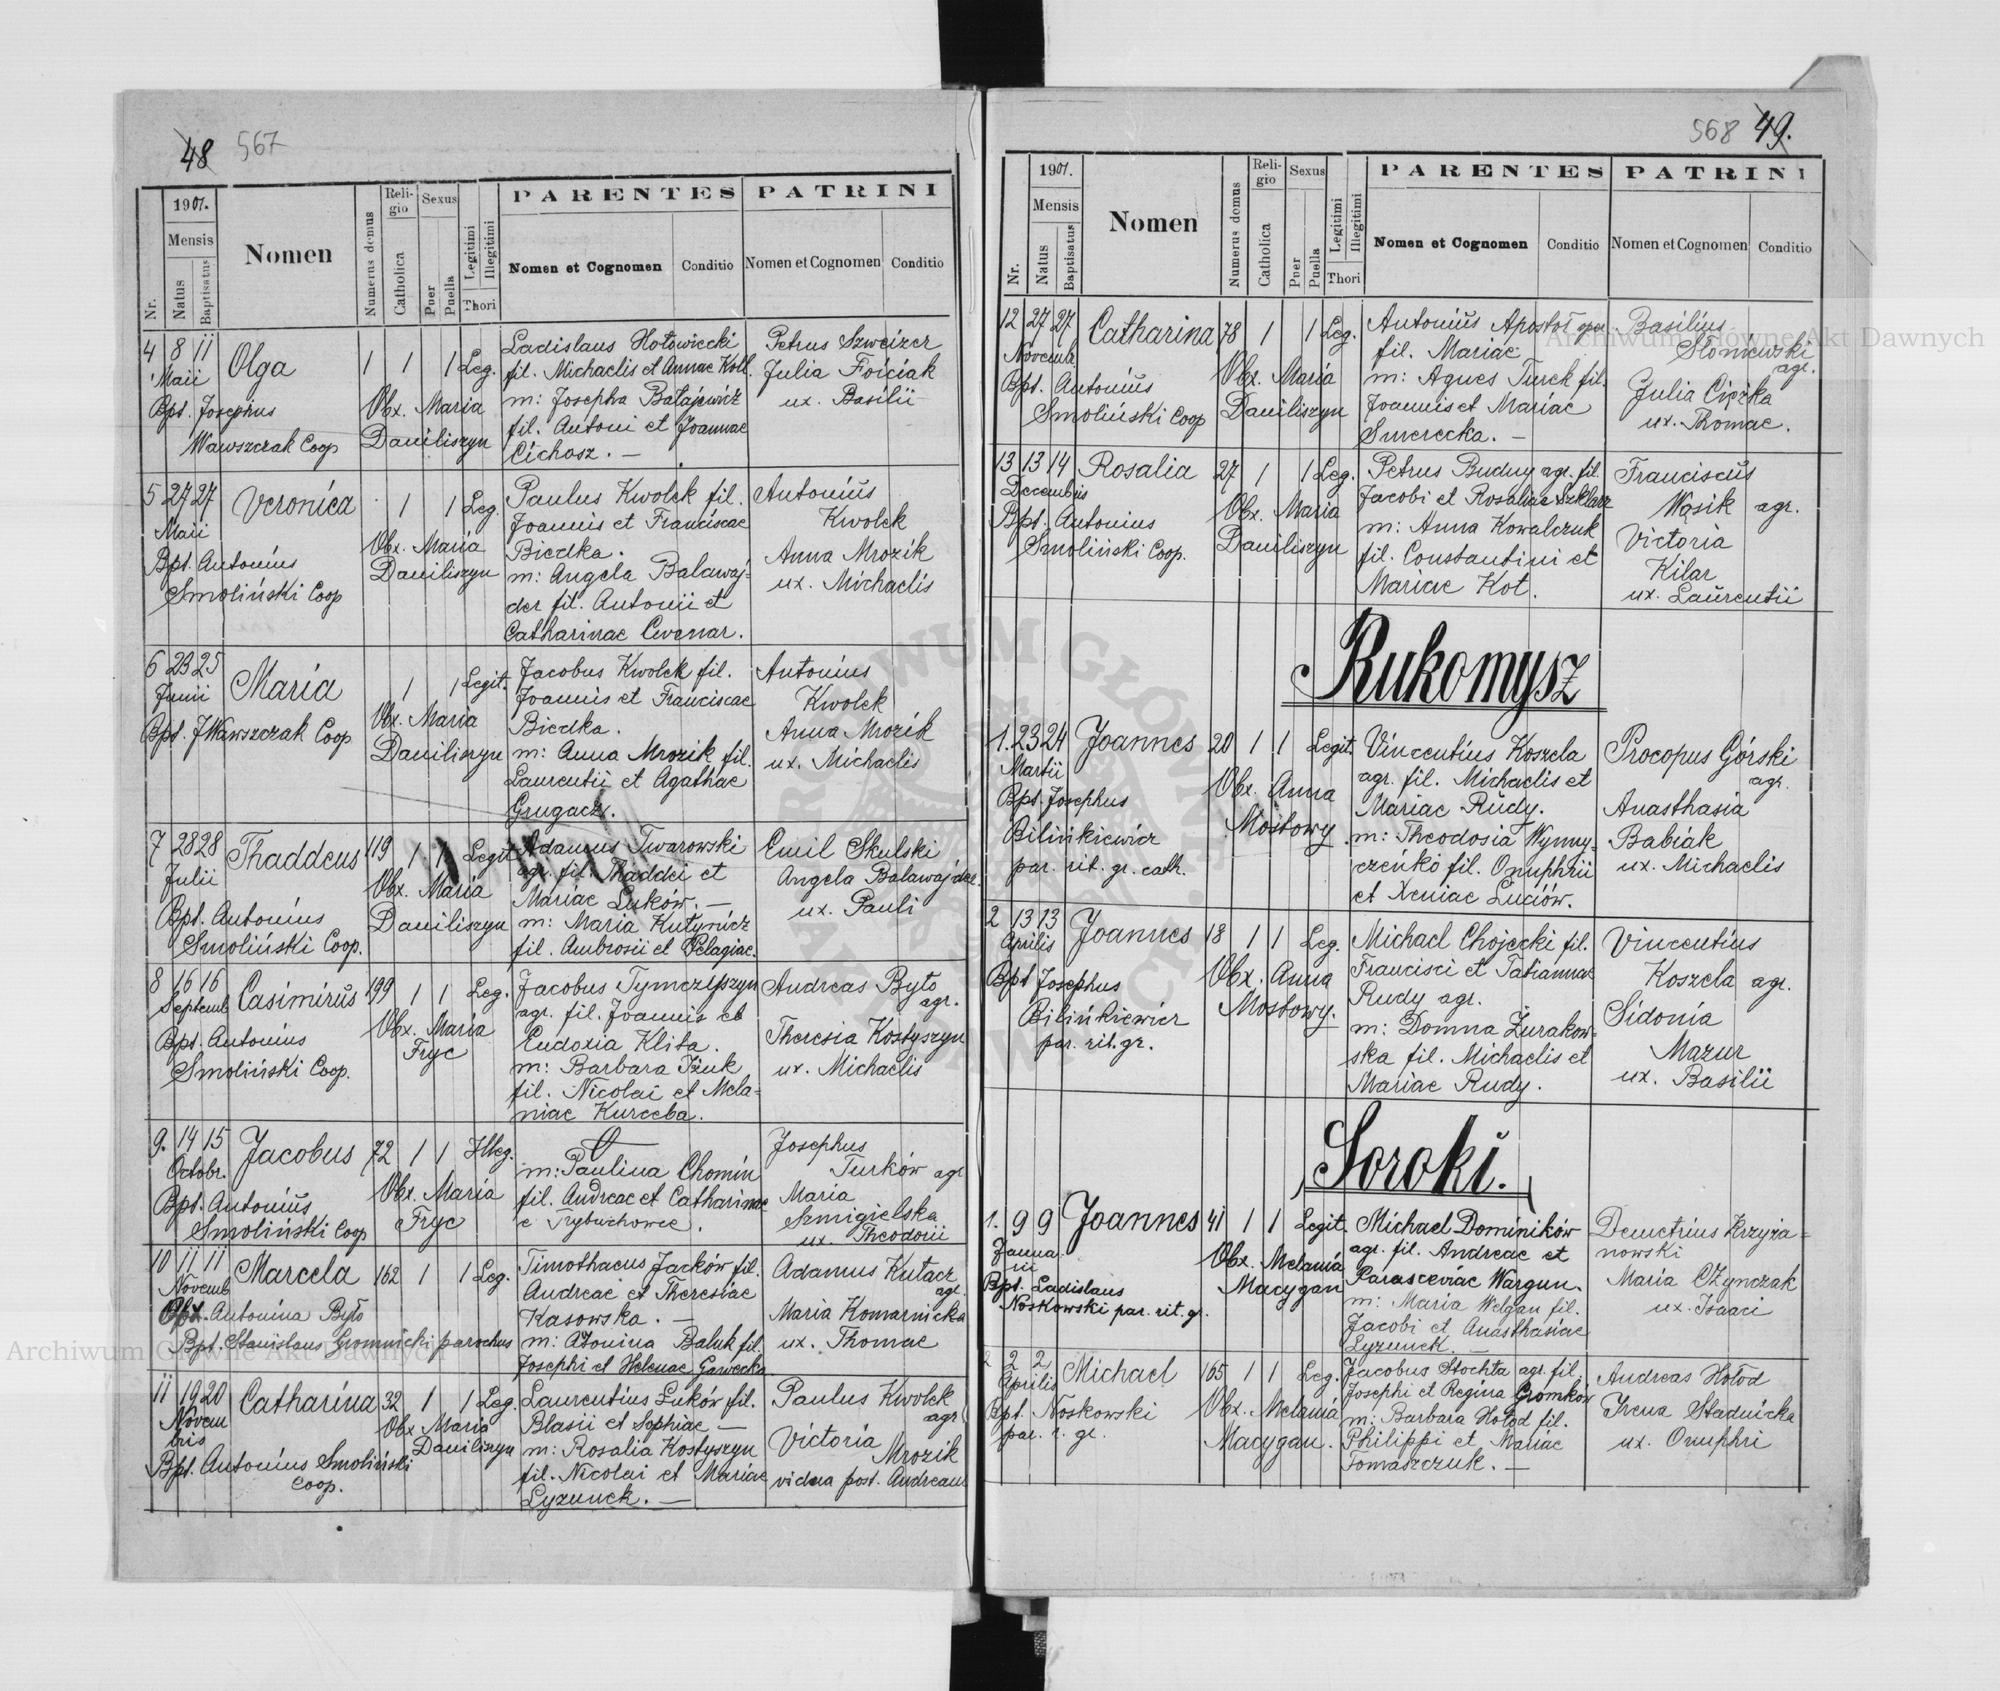 48 567
1901.
Mensis
Nr.
Natus
Baptisatus
Nomen
Numerus domus
Religio
Catholica
Sexus
Puer
Puella
Legitimi
Illegitimi
Thori
PARENTES
Nomen et Cognomen
Conditio
PATRINI
Nomen et Cognomen
Conditio
4 8 11 Olga 1 1 1 Leg.
Maii
Bpt. Josephus
Wawszczak Coop
Obx. Maria
Daniliszyn
Ladislaus Hołowiecki
fil. Michaelis et Annae Kott.
m: Josepha Batajewicz
fil. Antoni et Joannae
Cichosz. —
Petrus Szweizer
Julia Foiciak
ux. Basilii
5 27 27 Veronica 1 1 Leg.
Maii
Bpt. Antonius
Smoliński Coop
Obx. Maria
Daniliszyn
Paulus Kwolek fil.
Joannis et Franciscae
Biedka.
m: Angela Balawaj-
der fil. Antonii et
Catharinae Cwenar.
Antonius
Kwolek
Anna Mrozik
ux. Michaelis
6 23 25 Maria 1 1 Legit.
Junii
Bpt. J Wawszczak Coop
Obx. Maria
Daniliszyn
Jacobus Kwolek fil.
Joannis et Franciscae
Biedka.
m: Anna Mrozik fil.
Laurentii et Agathae
Grugacz.
Antonius
Kwolek
Anna Mrozik
ux. Michaelis
7 28 28 Thaddeus 119 1 1 Legit
Julii
Bpt. Antonius
Smoliński Coop.
Obx. Maria
Daniliszyn
Adamus Twarowski
agr. fil. Thaddei et
Mariae Luków. —
m: Maria Kutynicz
fil. Ambrosii et Pelagiae.
Emil Skulski
Angela Balawajder
ux. Pauli
8 16 16 Casimirus 199 1 1 Leg.
Septemb
Bpt. Antonius
Smoliński Coop.
Obx. Maria
Fryc
Jacobus Tymczyszyn
agr. fil. Joannis et
Eudoxia Klita.
m: Barbara Iżuk
fil. Nicolai et Mela-
niae Kurceba.
Andreas Byto
agr.
Theresia Kostyszyn
ux. Michaelis
9. 14 15 Jacobus 72 1 1 Illeg.
Octobr.
Bpt. Antonius
Smoliński Coop
Obx. Maria
Fryc
m: Paulina Chomin
fil. Andreae et Catharinae
e Trybuchowce.
Josephus
Turków agr
Maria
Szmigielska
ux. Theodorii
10 11 11 Marcela 162 1 1 Leg.
Novemb
Obx. Antonina Byto
Bpt. Stanislaus Gromnicki parochus
Timothaeus Jacków fil.
Andreae et Theresiae
Kasowska. —
m: Atonina Baluk fil.
Josephi et Helenae Gawecka
Adamus Kutacz
agr.
Maria Komarnicka
ux. Thomae
11 19 20 Catharina 32 1 1 Leg.
Novem
bris
Bpt. Antonius Smoliński
Coop.
Obx. Maria
Daniliszyn
Laurentius Luków fil.
Blasii et Sophiae —
m: Rosalia Kostyszyn
fil. Nicolai et Mariae
Lyzunek. —
Paulus Kwolek
agr
Victoria
Mrozik
vidua post. Andream
568 49.
1901.
Mensis
Nr.
Natus
Baptisatus
Nomen
Numerus domus
Religio
Catholica
Sexus
Puer
Puella
Legitimi
Illegitimi
Thori
PARENTES
Nomen et Cognomen
Conditio
PATRINI
Nomen et Cognomen
Conditio
12 27 27 Catharina 78 1 1 Leg.
Novemb
Bpt. Antonius
Smoliński Coop
Obx. Maria
Daniliszyn
Antonius Apostoł
fil. Mariae
m: Agnes Turek fil.
Joannis et Mariae
Smerecka. —
Basilius
Słoniewski
agr.
Julia Ciężka
ux. Thomae.
13 13 14 Rosalia 27 1 1 Leg.
Decembris
Bpt. Antonius
Smoliński Coop.
Obx. Maria
Daniliszyn
Petrus Budny agr. fil.
Jacobi et Rosaliae Szklarz
m: Anna Kowalczuk
fil. Constantini et
Mariae Kot.
Franciscus
Wąsik agr.
Victoria
Kilar
ux. Laurentii
Rukomysz
1. 23 24 Joannes 20 1 1 Legit.
Martii
Bpt. Josephus
Bilińkiewicz
par. rit. gr. cath.
Obx. Anna
Mostowy.
Vincentius Koszela
agr. fil. Michaelis et
Mariae Rudy.
m: Theodosia Wynny-
czeńko fil. Onuphrii
et Xeniae Luciów.
Procopus Górski
agr.
Anasthasia
Babiak
ux. Michaelis
2 13 13 Joannes 18 1 1 Leg.
Aprilis
Bpt Josephus
Bilińkiewicz
par. rit. gr.
Obx. Anna
Mostowy.
Michael Chojecki fil.
Francisci et Tatiannae
Rudy agr.
m: Domna Żurakow-
ska fil. Michaelis et
Mariae Rudy.
Vincentius
Koszela agr.
Sidonia
Mazur
ux. Basilii
Soroki.
1. 9 9 Joannes 41 1 1 Legit.
Janua-
rii
Bpt. Ladislaus
Noskowski par. rit. gr.
Obx. Melania
Macygan
Michael Dominików
agr. fil. Andreae et
Parasceviae Wargun.
m: Maria Welgan fil.
Jacobi et Anasthasiae
Lyzunek. —
Demetrius Krzyża-
nowski
Maria Ożynczak
ux. Isaaci
2 2 2 Michael 165 1 1 Leg.
Aprilis
Bpt. Noskowski
par. r. gr.
Obx. Melania
Macygan.
Jacobus Stochta agr. fil.
Josephi et Regina Gromków
m: Barbara Hołod fil.
Philippi et Mariae
Tomaszczuk. —
Andreas Hołod
Irena Stadnicka
ux. Onuphri
Archiwum Główne Akt Dawnych
Archiwum Główne Akt Dawnych
ARCHIWUM GŁÓWNE AKT DAWNYCH